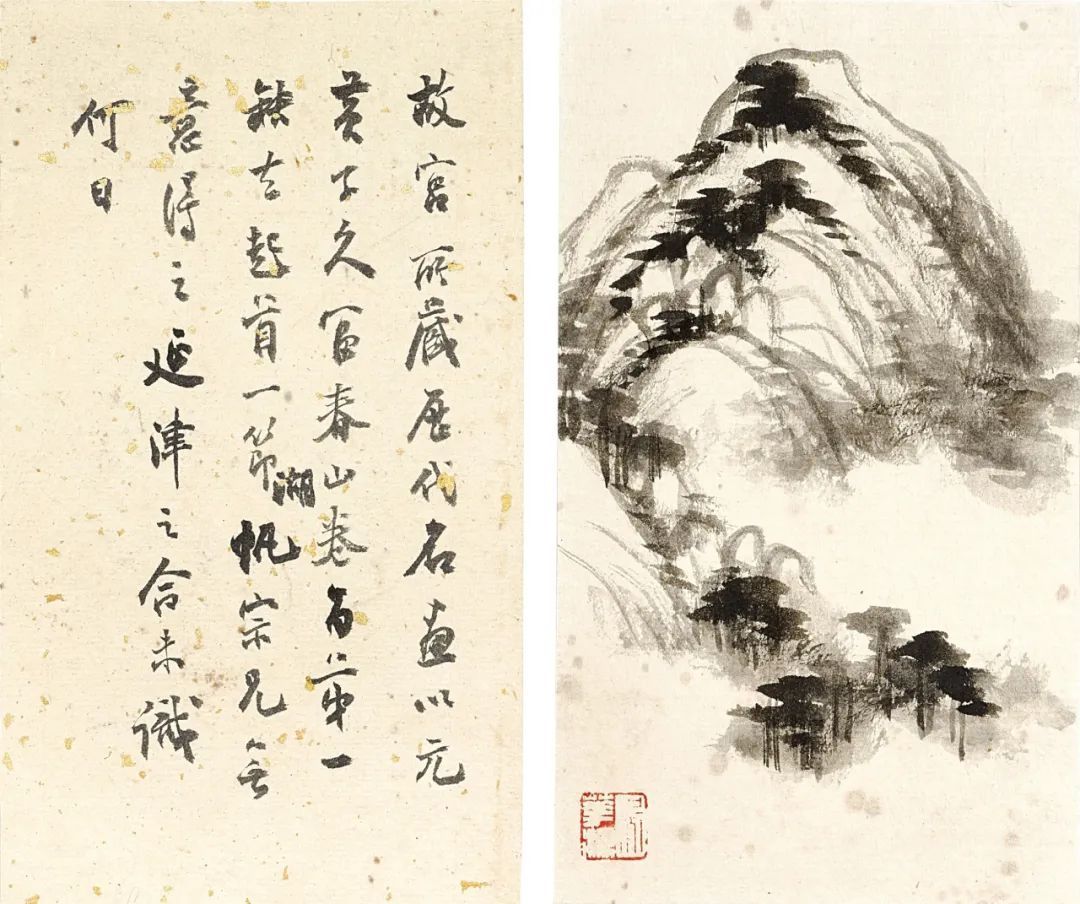 故宫所藏历代名画以元
黄子久富春山卷为第一
缺去起首一节湖帆宗兄无
意得之延津之合未识
何日